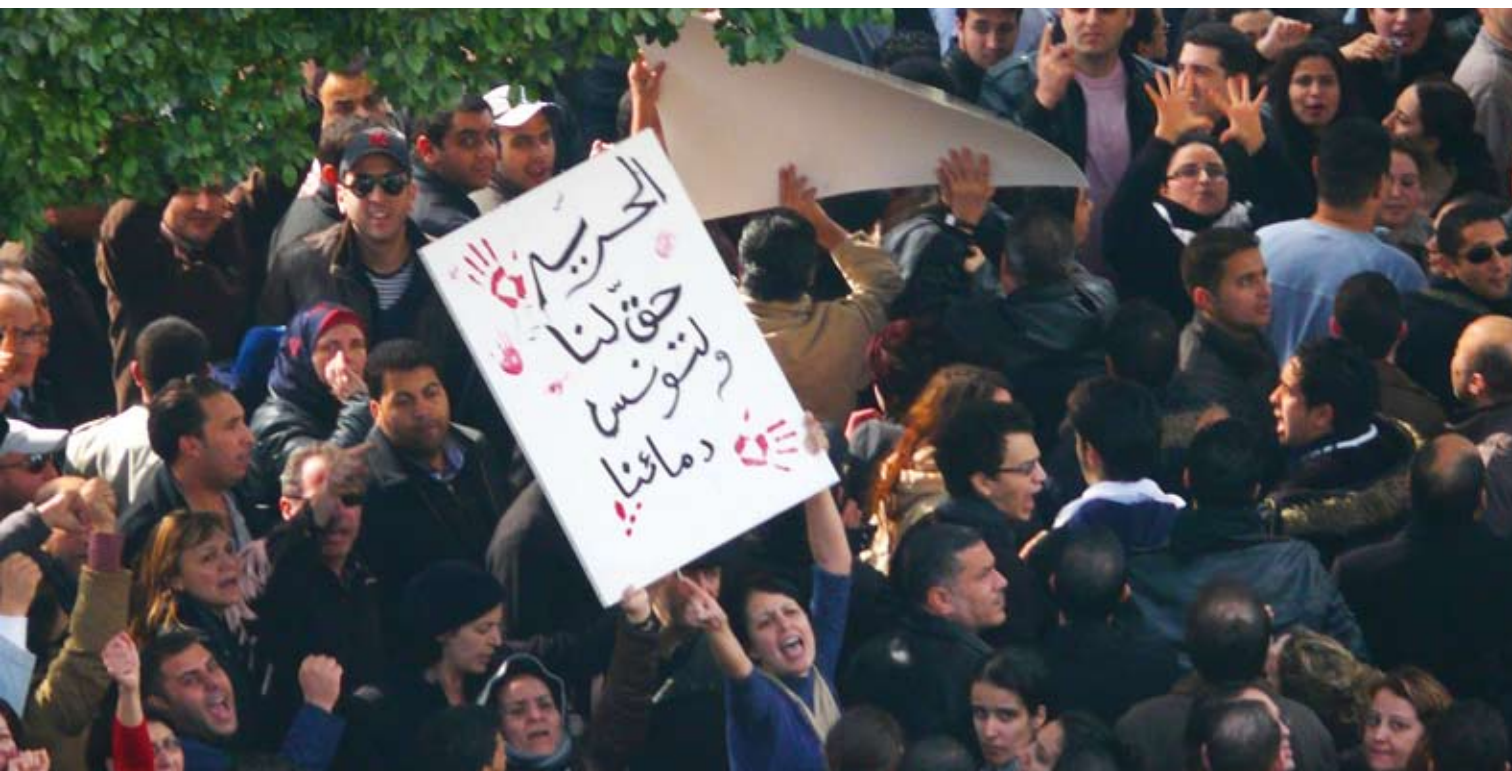 الحريّة
حقّ لنا
ولتونس
دمائنا